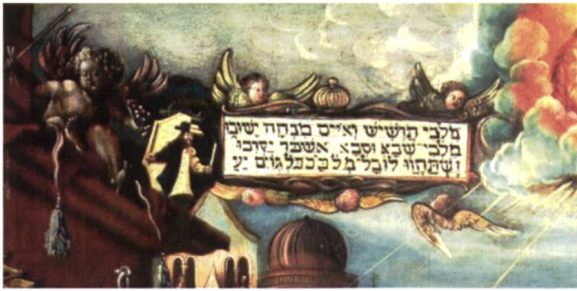 מלכי תרשיש ואיים מנחה ישיבו
מלכי שבא וסבא אשכר יקריבו
וישתחוו לו כל מלכים כל גוים יע